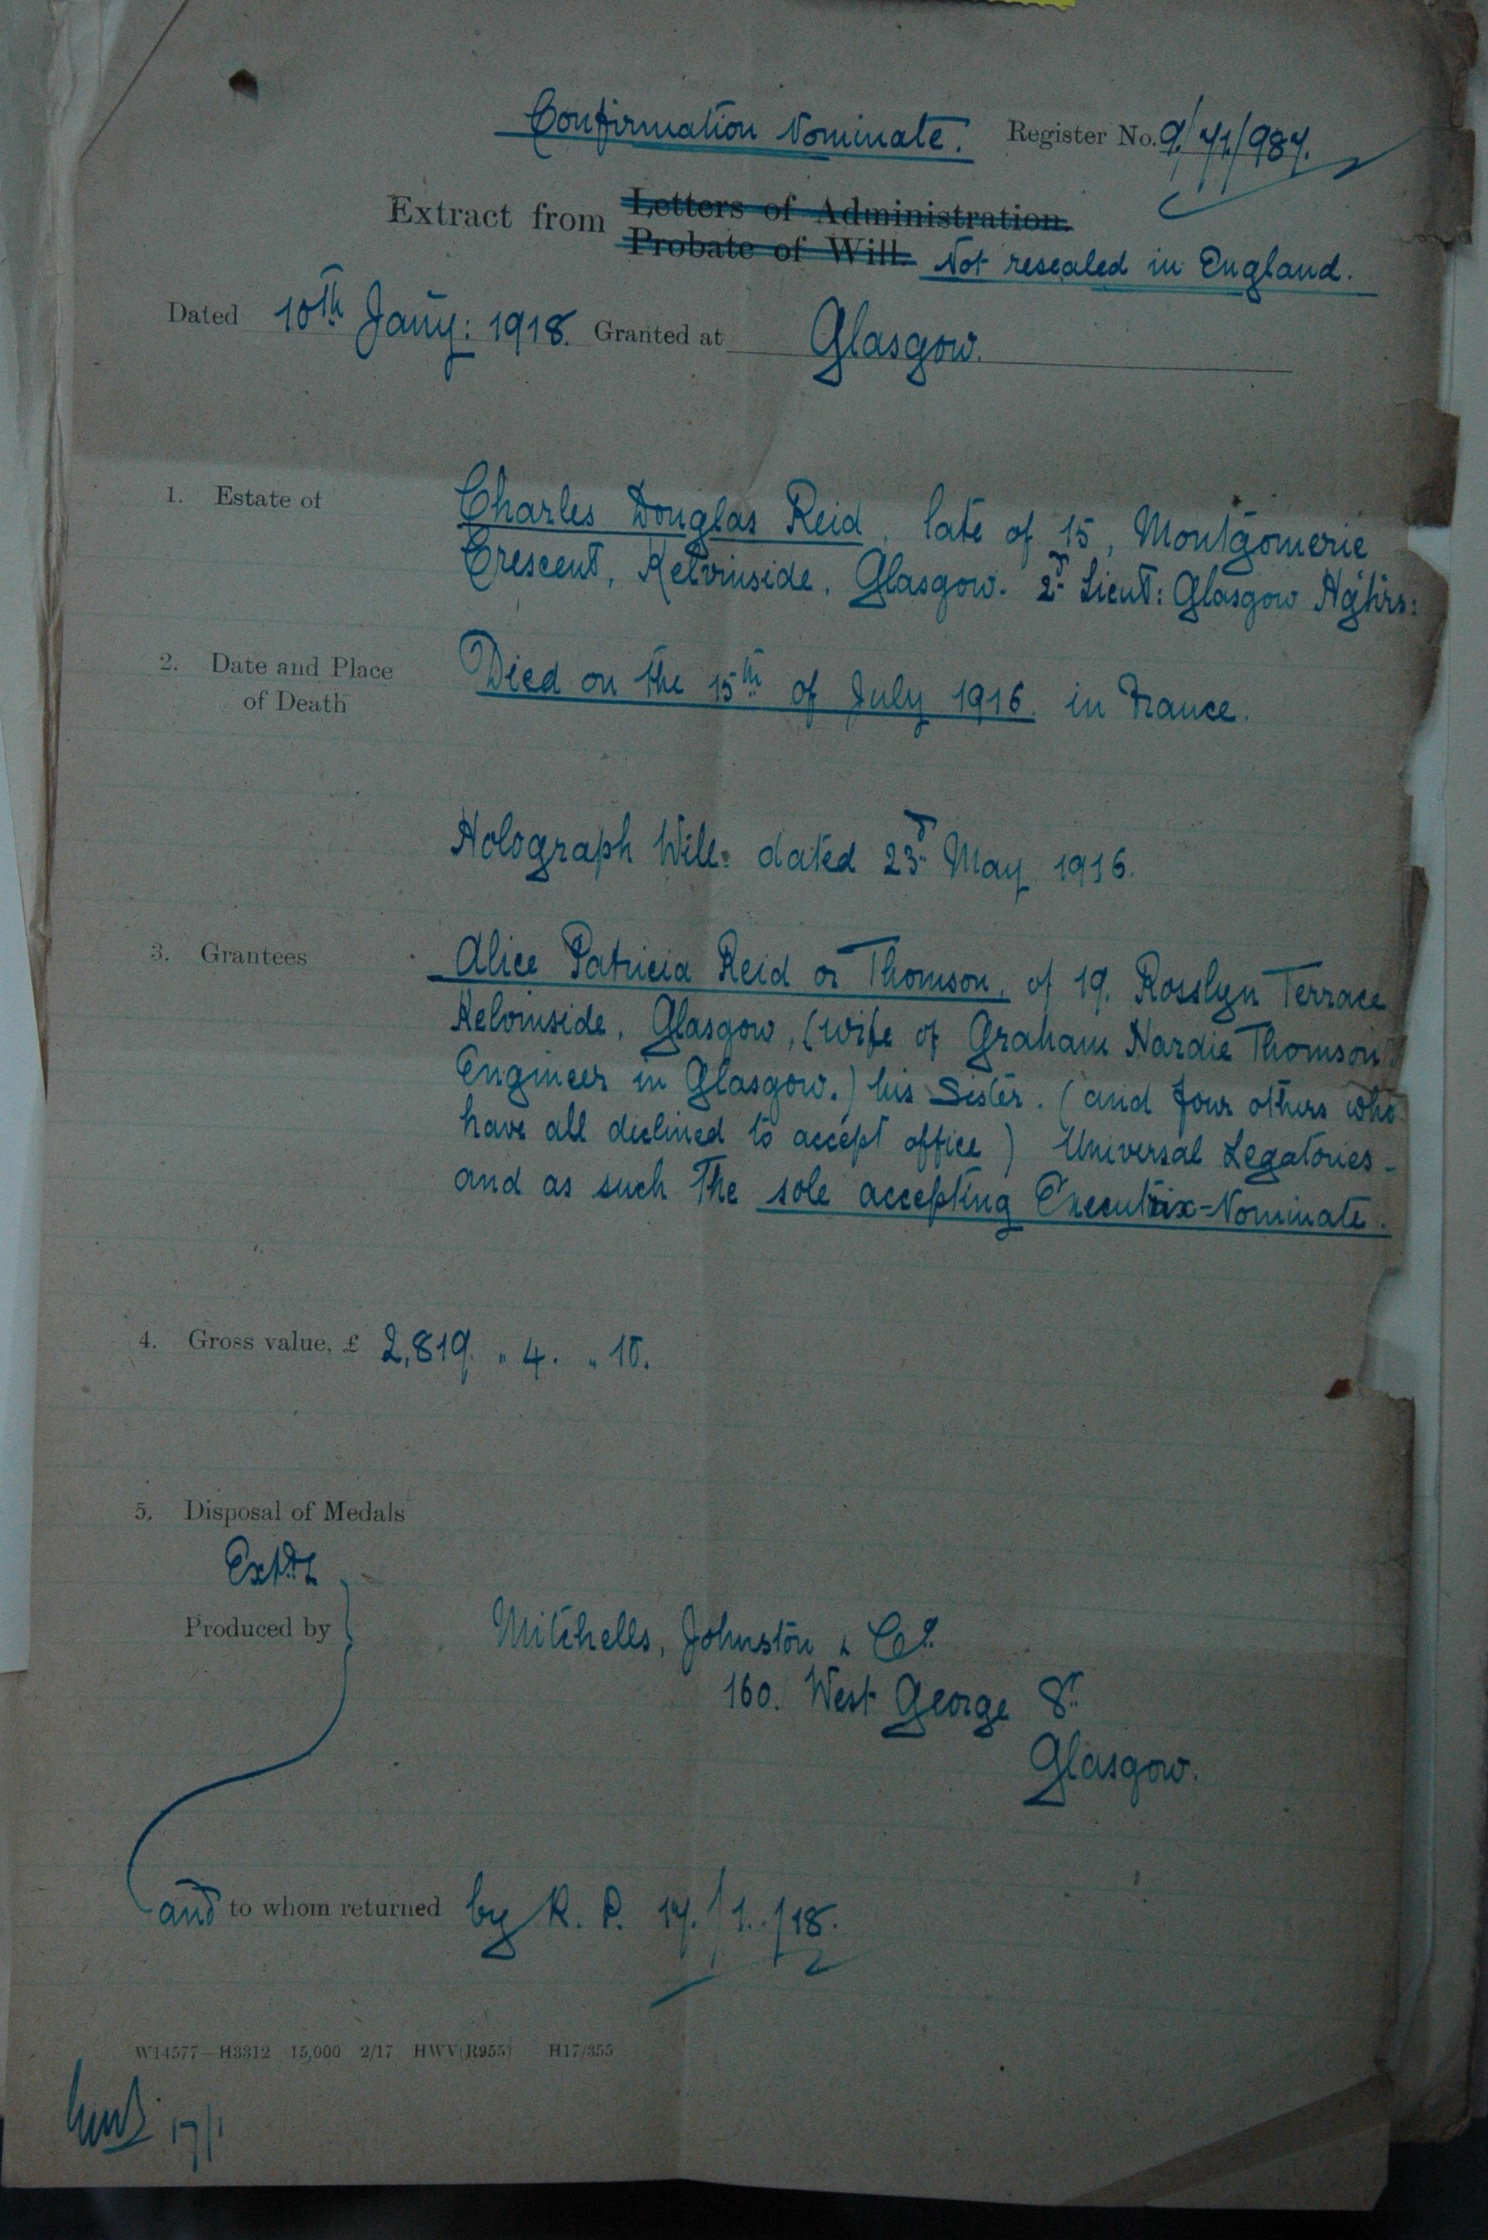 Confirmation Nominate. Register No. 9/71/987.
Extract from Letters of Administration.
Probate of Will. Not resealed in England.
Dated 10th Jany: 1918. Granted at Glasgow.
1. Estate of Charles Douglas Reid, late of 15, Montgomerie
Crescent, Kelvinside, Glasgow. 2d Lieut: Glasgow Hghrs:
2. Date and Place of Death Died on the 15th of July 1916 in France.
Holograph Will: dated 23d May 1916.
3. Grantees Alice Patricia Reid or Thomson, of 19, Rosslyn Terrace
Kelvinside, Glasgow, (wife of Graham Hardie Thomson,
Engineer in Glasgow.) his Sister. (and four others who
have all declined to accept office) Universal Legatories -
and as such the sole accepting Executrix-Nominate.
4. Gross value, £ 2,819 " 4. " 10.
5. Disposal of Medals
Produced by Mitchells, Johnston & Co.
160. West George St.
Glasgow.
and to whom returned by R. P. 17/1/18.
W14577—H3312 15,000 2/17 HWV(R955) H17/355
17/1